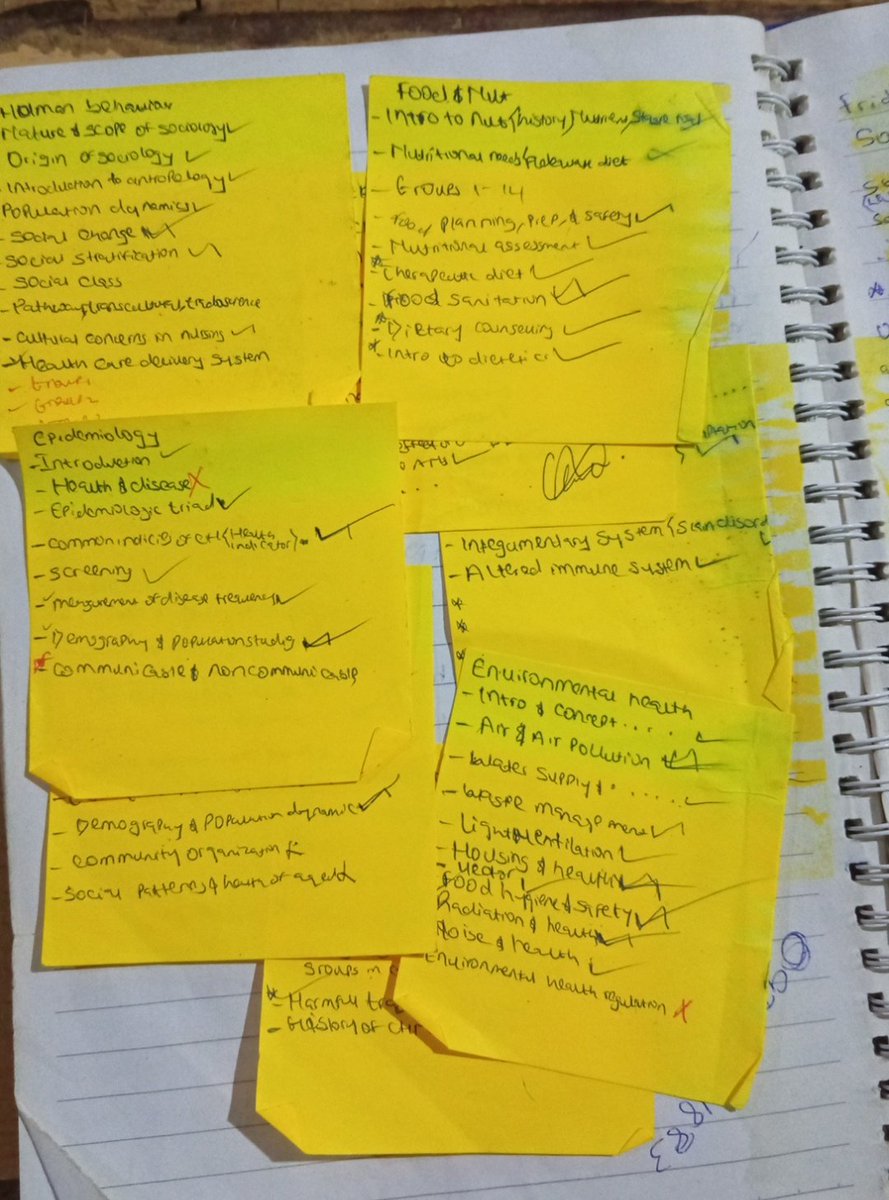 Human behaviour
Nature & scope of sociology
Origin of sociology
- Introduction to antropology
Population dynamics
- Social change
- Social stratification
- Social class
- Cultural concerns in nursing
- Health care delivery system
- Group1
- Group2
Food & Nut
- Intro to Nut (history)
- Nutritional needs diet
- Groups 1-14
- Food planning, prep, & safety
- Nutritional assessment
* - Therapeutic diet
- Food sanitation
* - Dietary counseling
* Intro to dietetics
Epidemiology
- Introduction
- Health & disease
- Epidemiologic triad
- Common indicies of (Health indicator)
- Screening
- measurement of disease frequency
- Demography & population
* Communicable & noncommunicable
- Integumentary system (skin disord
- Altered immune system
*
*
*
Environmental health
- Intro & concept....
- Air & Air pollution
- Water supply & .....
- Waste management
- Light & Ventilation
- Housing & health
- Vector
Food hygiene & safety
Radiation & health
Noise & health
Environmental health regulation
- Demography & population dynamic
- Community organization
- Social patterns & health of aged
groups in
* - Harmful
- History of
83